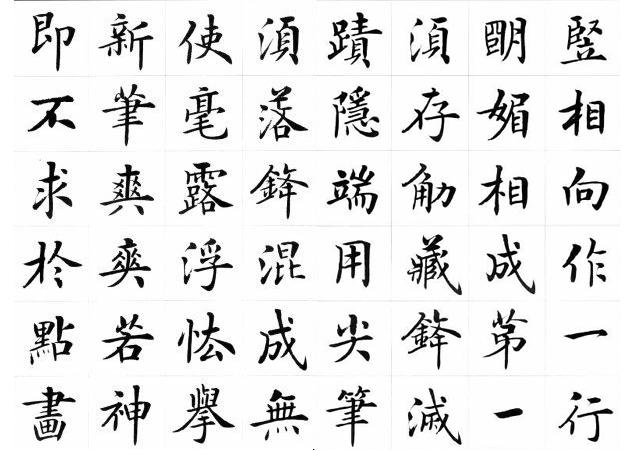 竪相向作一行
朙媚相成第一
須存觔藏鋒滅
蹟隱端用尖筆
須落鋒混成無
使毫露浮怯擧
新筆爽爽若神
即不求於點畫